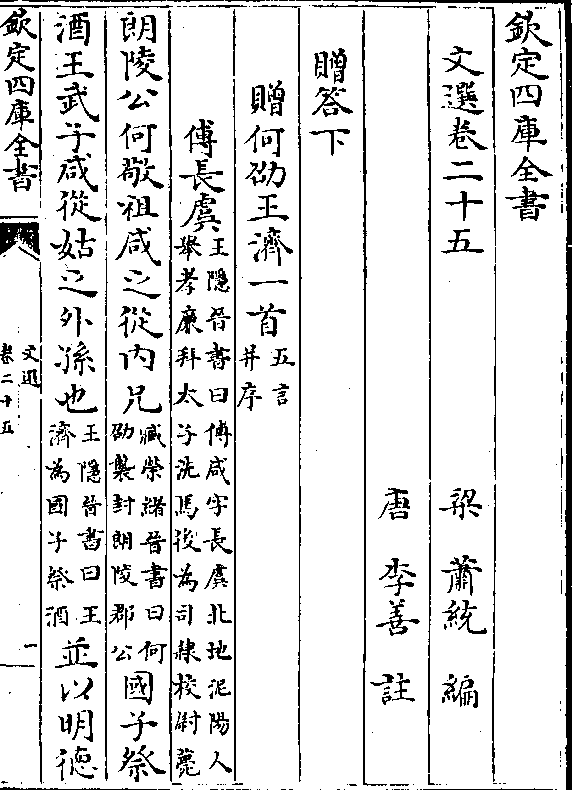 欽定四庫全書
文選卷二十五
梁 蕭統 編
唐 李善 註
贈答下
贈何劭王濟一首五言并序
傅長虞王隱晉書曰傅咸字長虞北地泥陽人舉孝廉拜太子洗馬後為司隸校尉薨
朗陵公何敬祖咸之從內兄臧榮緒晉書曰何劭襲封朗陵郡公國子祭
酒王武子咸從姑之外孫也王隱晉書曰王濟為國子祭酒並以明德
欽定四庫全書
文選
卷二十五
一